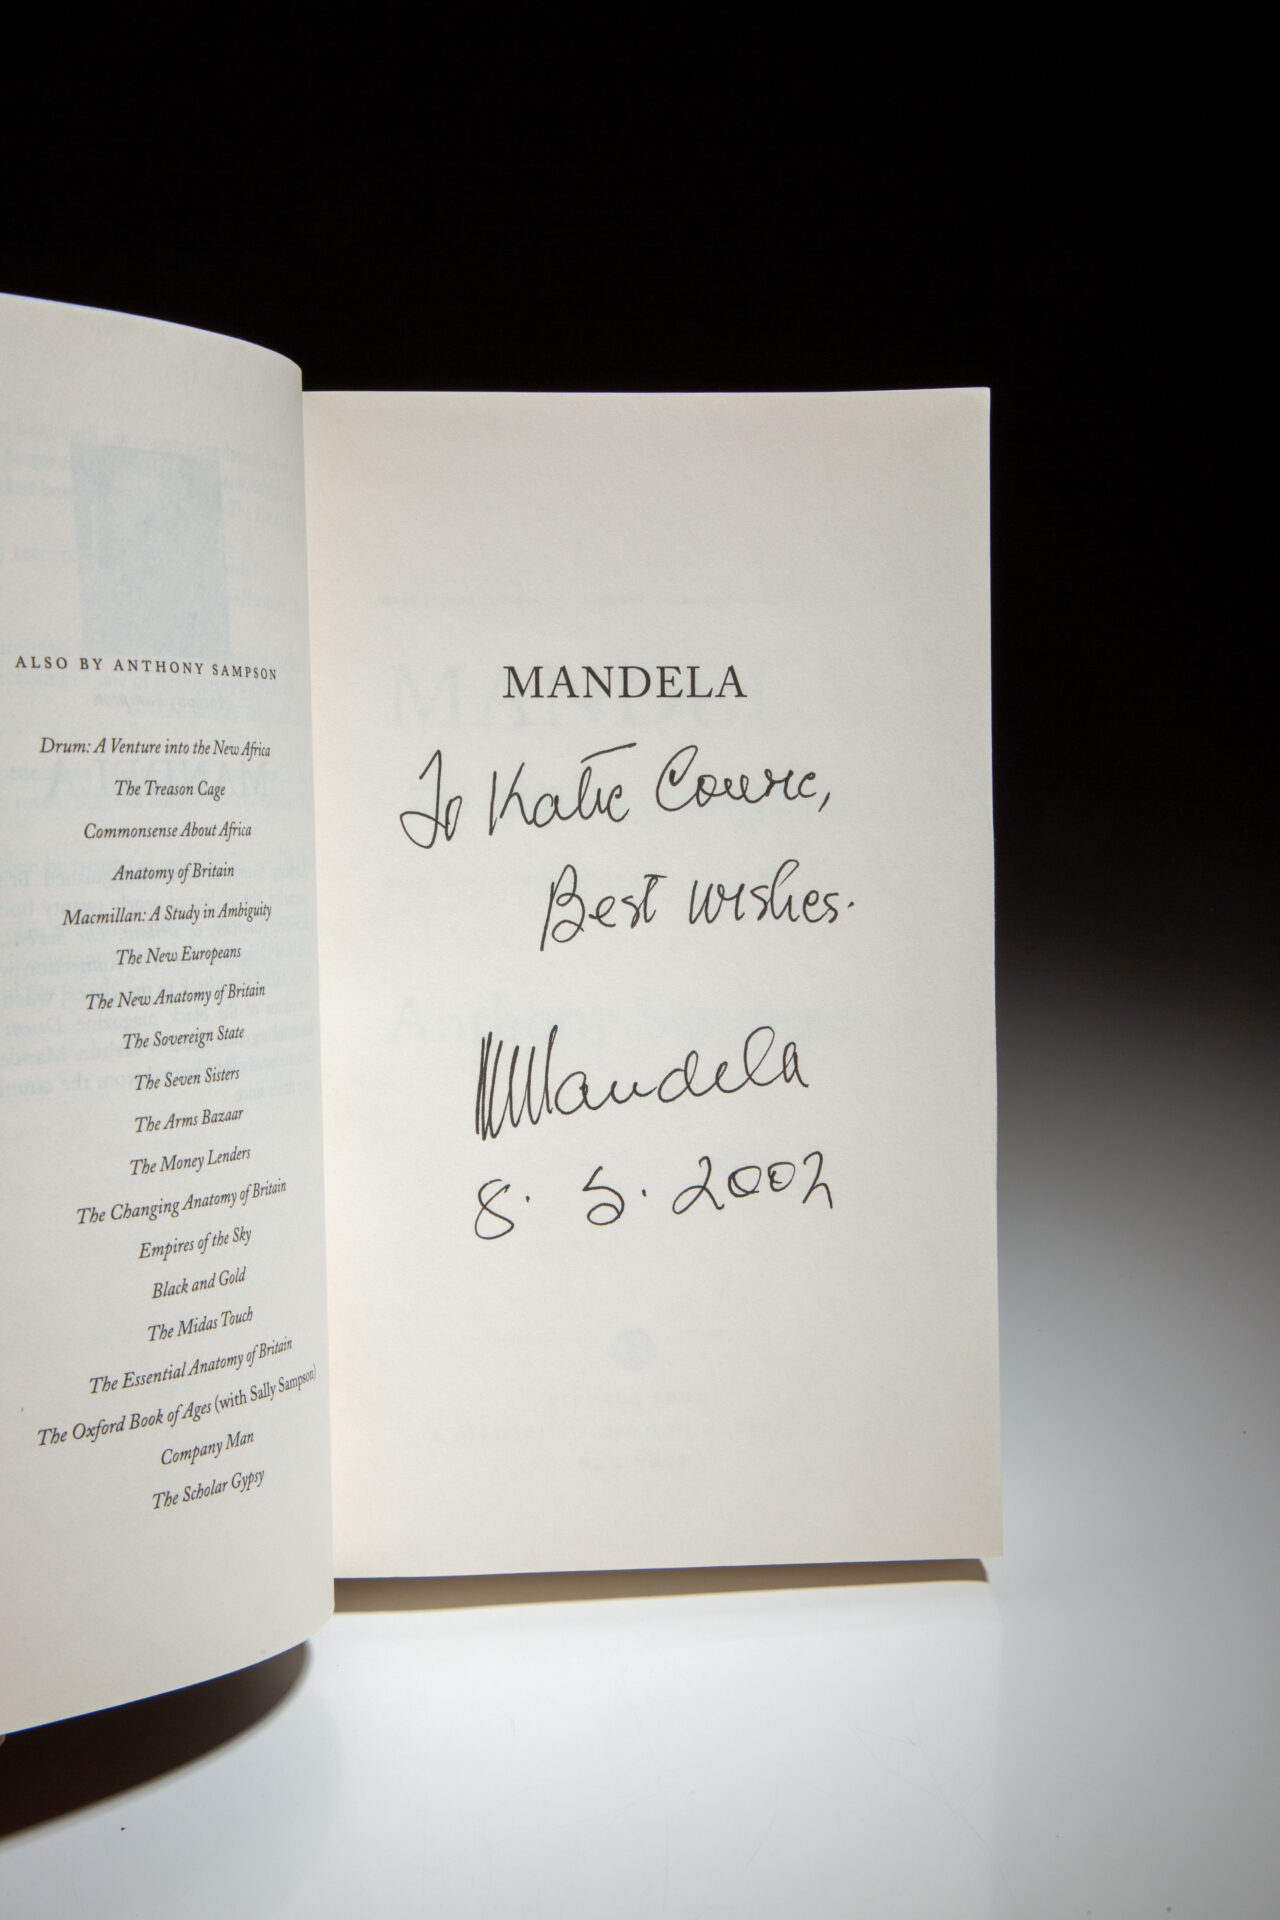 ALSO BY ANTHONY SAMPSON
Drum: A Venture into the New Africa
The Treason Cage
Commonsense About Africa
Anatomy of Britain
Macmillan: A Study in Ambiguity
The New Europeans
The New Anatomy of Britain
The Sovereign State
The Seven Sisters
The Arms Bazaar
The Money Lenders
The Changing Anatomy of Britain
Empires of the Sky
Black and Gold
The Midas Touch
The Essential Anatomy of Britain
The Oxford Book of Ages (with Sally Sampson)
Company Man
The Scholar Gypsy
MANDELA
To Katie Couric,
Best wishes.
NMandela
8. 5. 2002